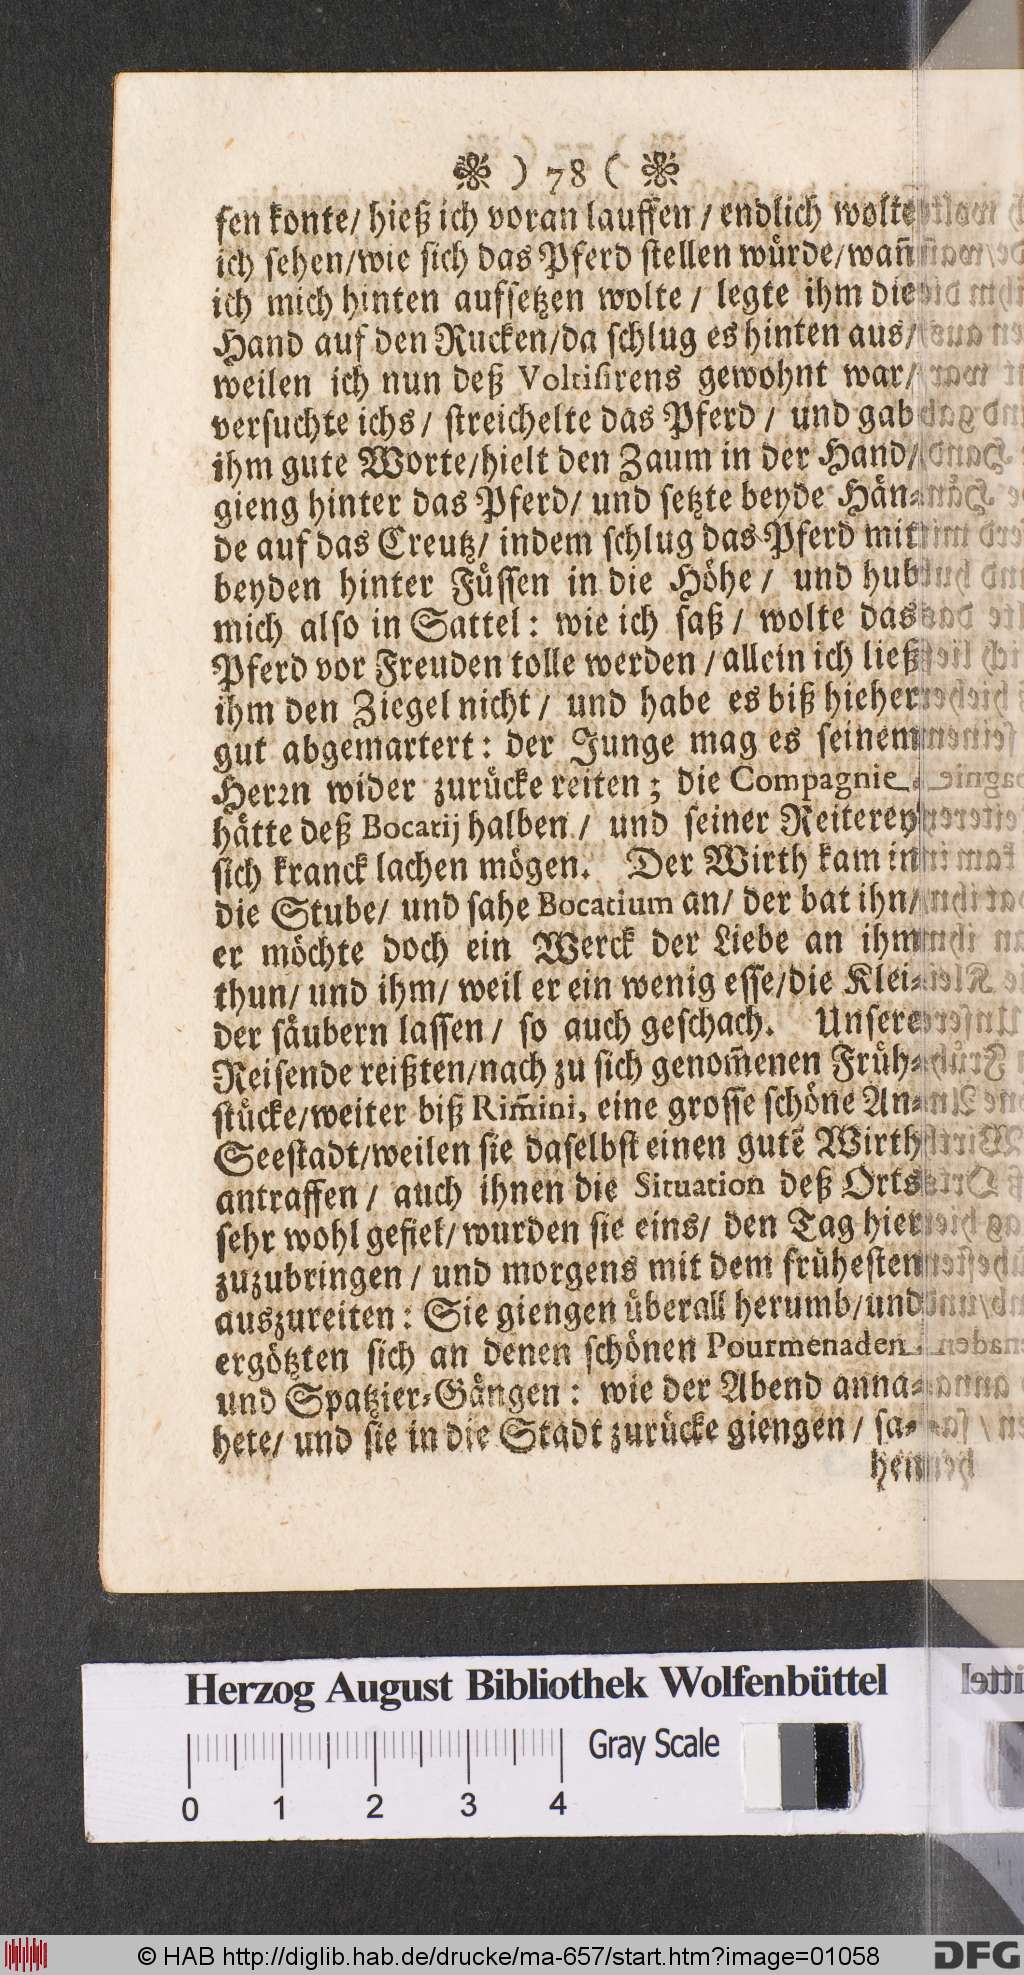 ) 78 (
sen konte/ hieß ich voran lauffen / endlich wolte
ich sehen/wie sich das Pferd stellen würde/wañ
ich mich hinten aufsetzen wolte / legte ihm die
Hand auf den Rucken/da schlug es hinten aus/
weilen ich nun deß Voltisirens gewohnt war/
versuchte ichs / streichelte das Pferd / und gab
ihm gute Worte/hielt den Zaum in der Hand/
gieng hinter das Pferd/ und setzte beyde Hän-
de auf das Creutz/ indem schlug das Pferd mit
beyden hinter Füssen in die Höhe / und hub
mich also in Sattel: wie ich saß / wolte das
Pferd vor Freuden tolle werden / allein ich ließ
ihm den Ziegel nicht / und habe es biß hieher
gut abgemartert: der Junge mag es seinem
Herrn wider zurücke reiten; die Compagnie
hätte deß Bocatij halben / und seiner Reiterey
sich kranck lachen mögen. Der Wirth kam in
die Stube/ und sahe Bocatium an/ der bat ihn/
er möchte doch ein Werck der Liebe an ihm
thun/ und ihm/ weil er ein wenig esse/die Klei-
der säubern lassen / so auch geschach. Unsere
Reisende reißten/nach zu sich genom̃enen Früh-
stücke/weiter biß Rim̃ini, eine grosse schöne An-
Seestadt/weilen sie daselbst einen gutẽ Wirth
antraffen / auch ihnen die Situation deß Orts
sehr wohl gefiel/ wurden sie eins/ den Tag hier
zuzubringen / und morgens mit dem frühesten
auszureiten: Sie giengen überall herumb/und
ergötzten sich an denen schönen Pourmenaden
und Spatzier-Gängen: wie der Abend anna-
hete/ und sie in die Stadt zurücke giengen / sa-
hen
Herzog August Bibliothek Wolfenbüttel
Gray Scale
0 1 2 3 4
© HAB http://diglib.hab.de/drucke/ma-657/start.htm?image=01058
DFG